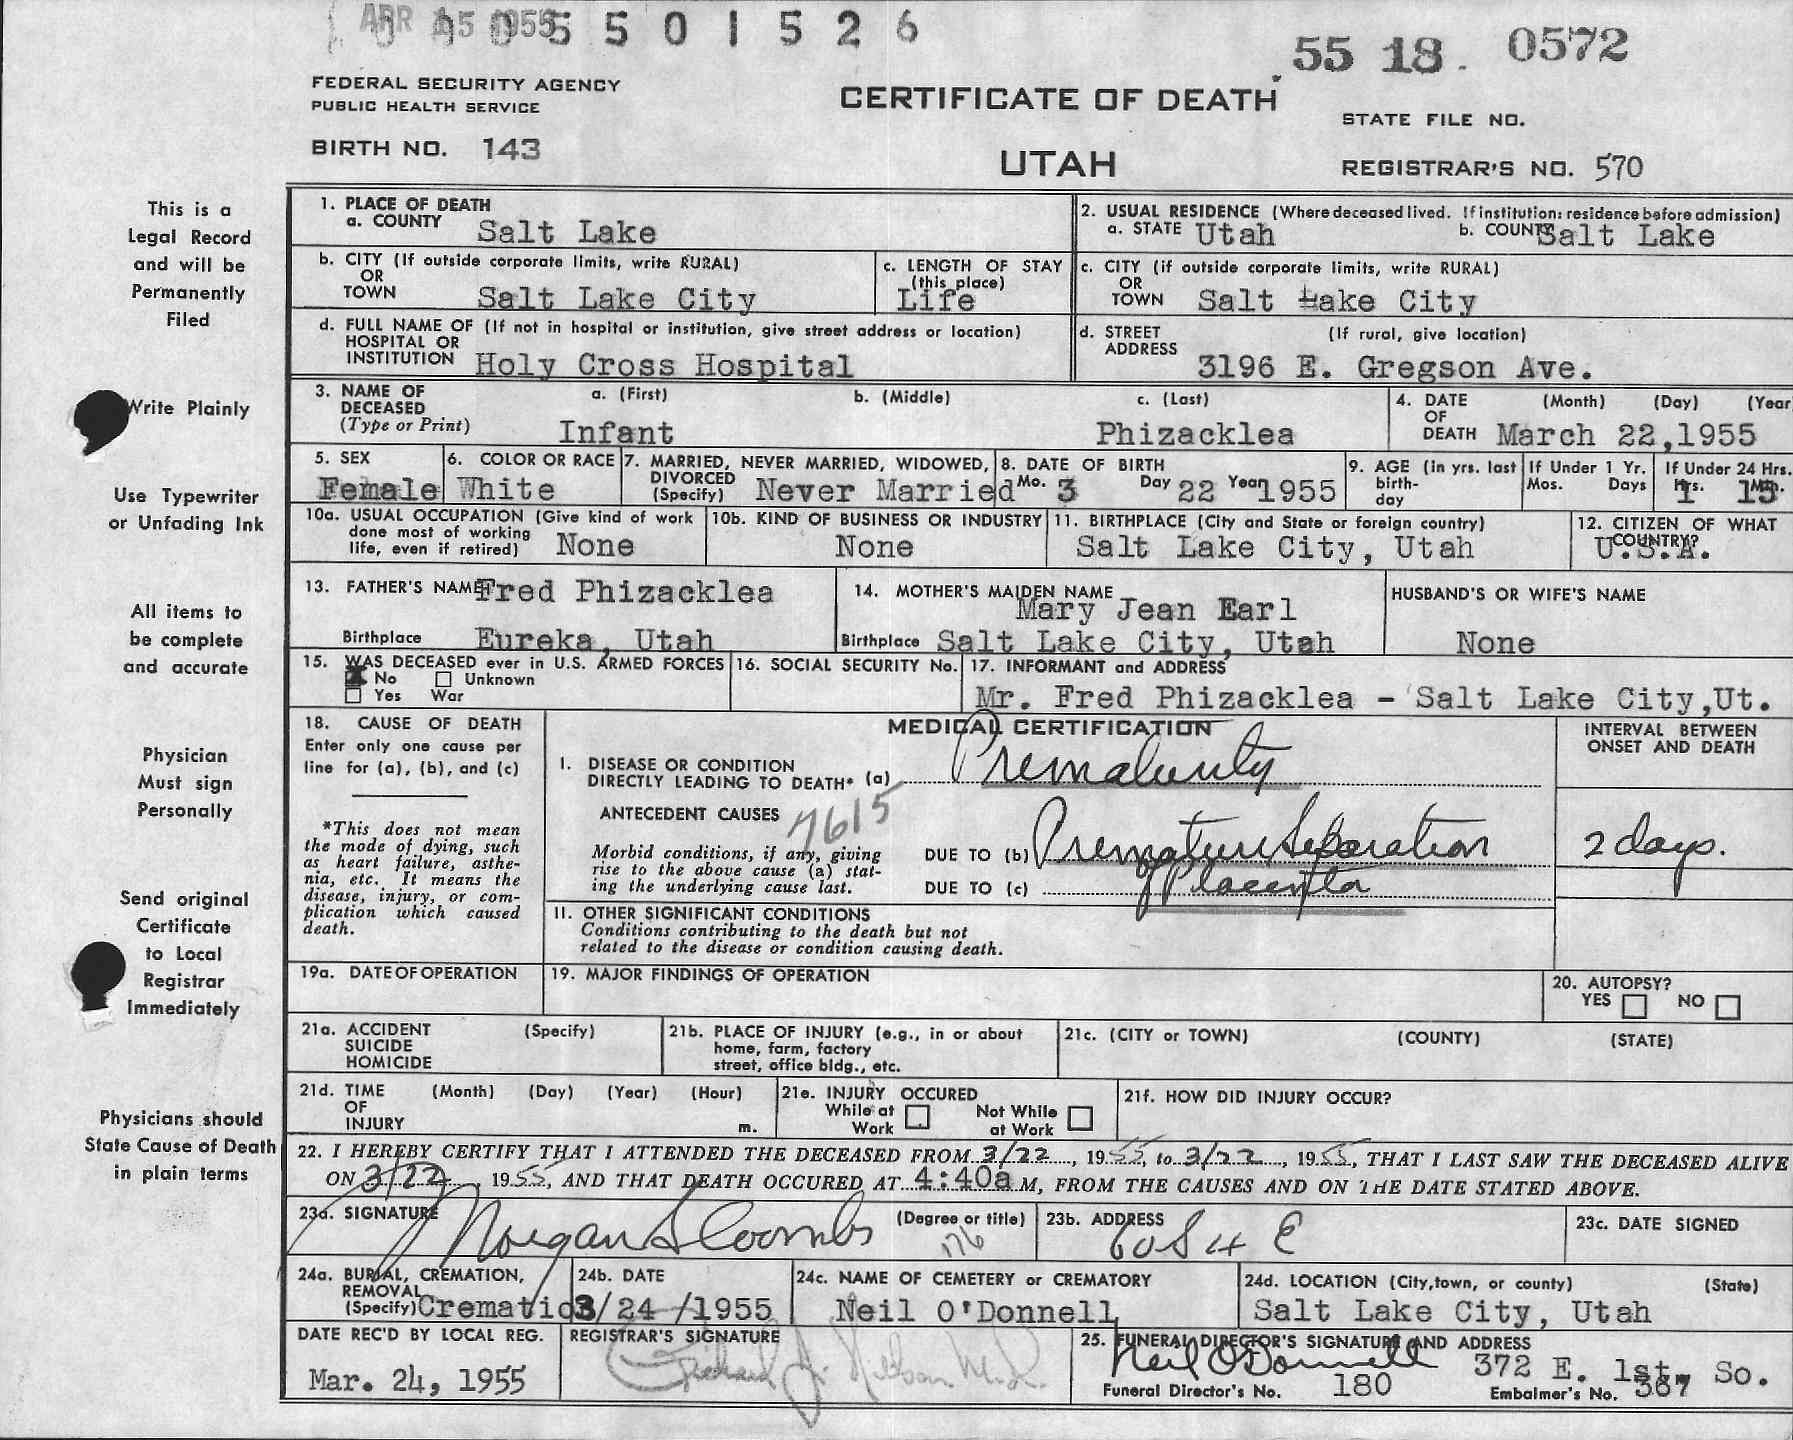 APR 15 1955
5 5 0 1 5 2 6
55 18 0572
FEDERAL SECURITY AGENCY
PUBLIC HEALTH SERVICE
CERTIFICATE OF DEATH
STATE FILE NO.
BIRTH NO. 143
UTAH
REGISTRAR'S NO. 570
This is a
Legal Record
and will be
Permanently
Filed
Write Plainly
Use Typewriter
or Unfading Ink
All items to
be complete
and accurate
Physician
Must sign
Personally
Send original
Certificate
to Local
Registrar
Immediately
Physicians should
State Cause of Death
in plain terms
1. PLACE OF DEATH
a. COUNTY Salt Lake
2. USUAL RESIDENCE (Where deceased lived. If institution: residence before admission)
a. STATE Utah b. COUNTY Salt Lake
b. CITY (If outside corporate limits, write RURAL)
OR
TOWN Salt Lake City
c. LENGTH OF STAY
(this place)
Life
c. CITY (if outside corporate limits, write RURAL)
OR
TOWN Salt Lake City
d. FULL NAME OF (If not in hospital or institution, give street address or location)
HOSPITAL OR
INSTITUTION Holy Cross Hospital
d. STREET (If rural, give location)
ADDRESS
3196 E. Gregson Ave.
3. NAME OF a. (First) b. (Middle) c. (Last)
DECEASED
(Type or Print) Infant Phizacklea
4. DATE (Month) (Day) (Year
OF
DEATH March 22,1955
5. SEX
Female
6. COLOR OR RACE
White
7. MARRIED, NEVER MARRIED, WIDOWED,
DIVORCED
(Specify) Never Married
8. DATE OF BIRTH
Mo. 3 Day 22 Year 1955
9. AGE (in yrs. last
birth-
day
If Under 1 Yr.
Mos. Days
If Under 24 Hrs.
Hrs. Min.
1 15
10a. USUAL OCCUPATION (Give kind of work
done most of working
life, even if retired) None
10b. KIND OF BUSINESS OR INDUSTRY
None
11. BIRTHPLACE (City and State or foreign country)
Salt Lake City, Utah
12. CITIZEN OF WHAT
COUNTRY?
U.S.A.
13. FATHER'S NAME Fred Phizacklea
Birthplace Eureka, Utah
14. MOTHER'S MAIDEN NAME
Mary Jean Earl
Birthplace Salt Lake City, Utah
HUSBAND'S OR WIFE'S NAME
None
15. WAS DECEASED ever in U.S. ARMED FORCES
No Unknown
Yes War
16. SOCIAL SECURITY No.
17. INFORMANT and ADDRESS
Mr. Fred Phizacklea - Salt Lake City,Ut.
18. CAUSE OF DEATH
Enter only one cause per
line for (a), (b), and (c)
*This does not mean
the mode of dying, such
as heart failure, asthe-
nia, etc. It means the
disease, injury, or com-
plication which caused
death.
MEDICAL CERTIFICATION
I. DISEASE OR CONDITION
DIRECTLY LEADING TO DEATH* (a) Prematurity
ANTECEDENT CAUSES 7615
Morbid conditions, if any, giving
rise to the above cause (a) stat-
ing the underlying cause last.
DUE TO (b) Premature Separation
DUE TO (c) of Placenta
INTERVAL BETWEEN
ONSET AND DEATH
2 days.
II. OTHER SIGNIFICANT CONDITIONS
Conditions contributing to the death but not
related to the disease or condition causing death.
19a. DATE OF OPERATION
19. MAJOR FINDINGS OF OPERATION
20. AUTOPSY?
YES NO
21a. ACCIDENT (Specify)
SUICIDE
HOMICIDE
21b. PLACE OF INJURY (e.g., in or about
home, farm, factory
street, office bldg., etc.
21c. (CITY or TOWN) (COUNTY) (STATE)
21d. TIME (Month) (Day) (Year) (Hour)
OF
INJURY m.
21e. INJURY OCCURED
While at Not While
Work at Work
21f. HOW DID INJURY OCCUR?
22. I HEREBY CERTIFY THAT I ATTENDED THE DECEASED FROM 3/22, 1955, to 3/22, 1955, THAT I LAST SAW THE DECEASED ALIVE
ON 3/22, 1955, AND THAT DEATH OCCURED AT 4:40a M, FROM THE CAUSES AND ON THE DATE STATED ABOVE.
23a. SIGNATURE (Degree or title)
Morgan S Coombs
23b. ADDRESS
60 S 4 E
23c. DATE SIGNED
24a. BURIAL, CREMATION,
REMOVAL
(Specify) Cremation
24b. DATE
3/24/1955
24c. NAME OF CEMETERY or CREMATORY
Neil O'Donnell
24d. LOCATION (City,town, or county) (State)
Salt Lake City, Utah
DATE REC'D BY LOCAL REG.
Mar. 24, 1955
REGISTRAR'S SIGNATURE
25. FUNERAL DIRECTOR'S SIGNATURE AND ADDRESS
Neil O'Donnell 372 E. 1st. So.
Funeral Director's No. 180 Embalmer's No. 367